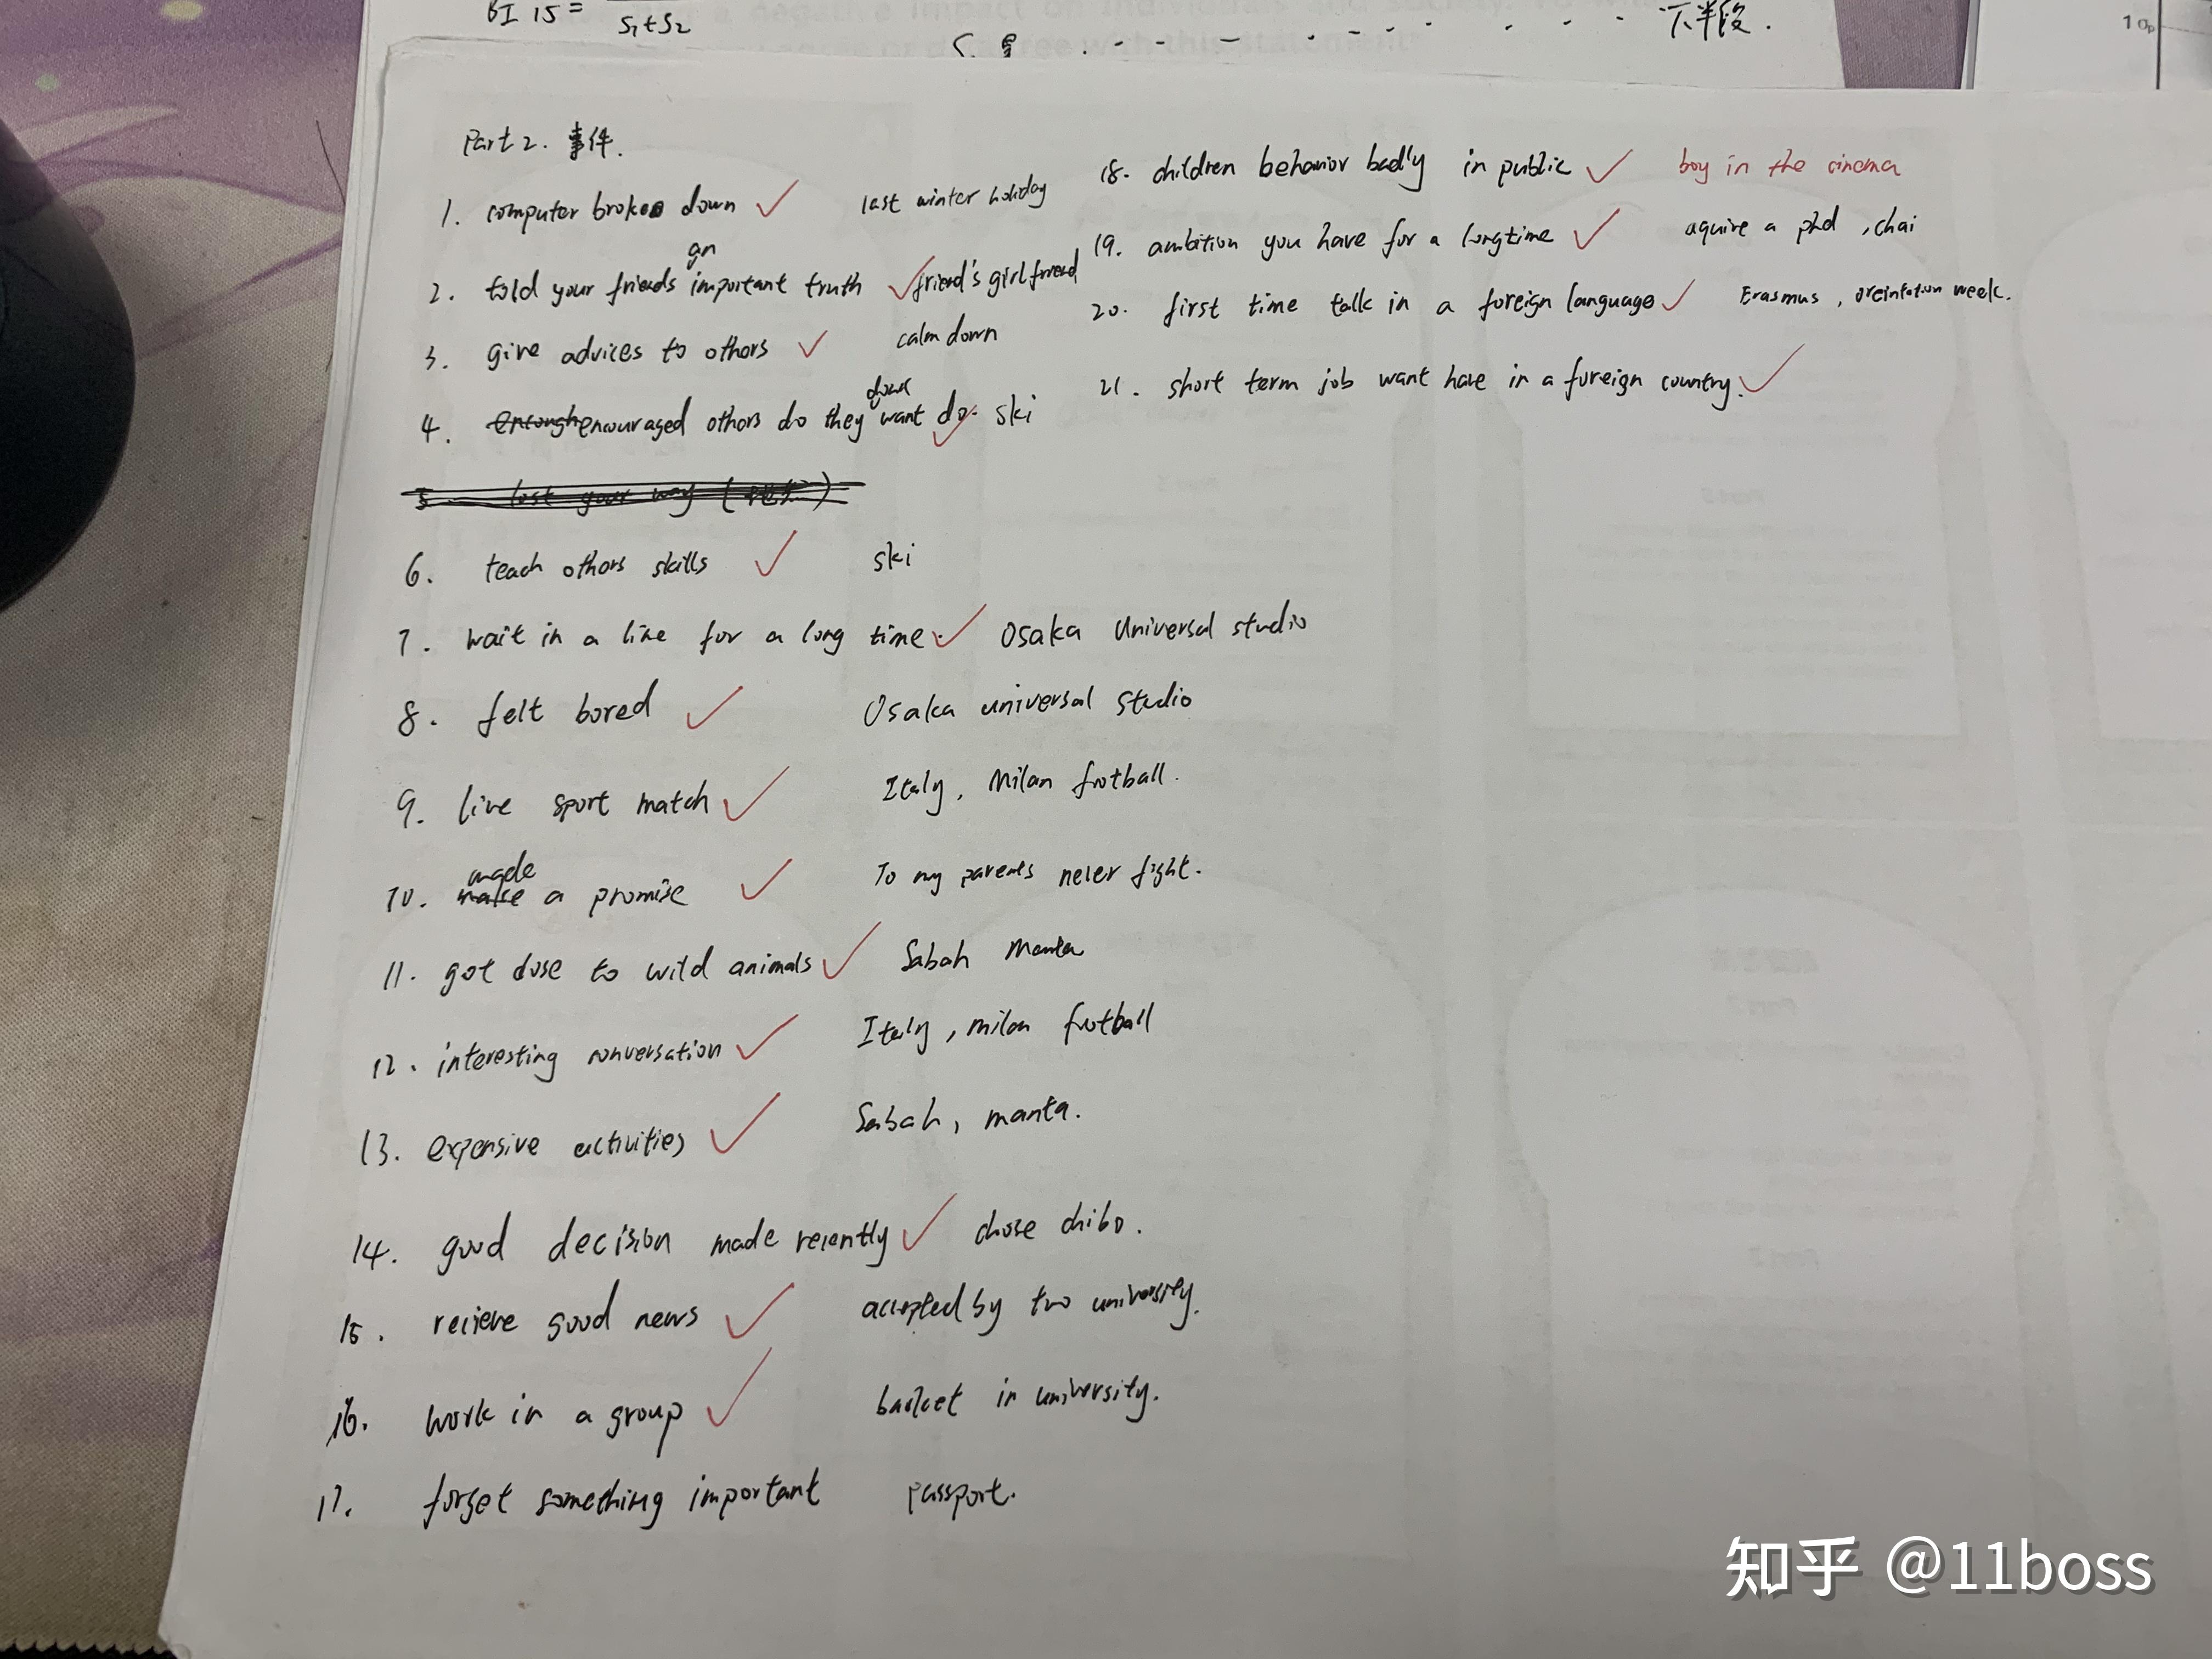 BI 15 =
S1+S2
下半段.
1σp
Part 2. 事件.
1. computer broke down ✓ last winter holiday
an
2. told your friends important truth ✓ friend's girlfriend
3. give advices to others ✓ calm down
4. encouraged others do they want do. ✓ ski
5. lost your way
6. teach others skills ✓ ski
7. wait in a line for a long time. ✓ Osaka Universal studio
8. felt bored ✓ Osaka universal studio
9. live sport match ✓ Italy, Milan football.
made
10. make a promise ✓ To my parents never fight.
11. got close to wild animals ✓ Sabah Manta
12. interesting conversation ✓ Italy, milan football
13. expensive activities ✓ Sabah, manta.
14. good decision made recently ✓ chose chibo.
15. recieve good news ✓ accepted by two university.
16. work in a group ✓ basket in university.
17. forget something important passport.
18. children behavior badly in public ✓ boy in the cinema
19. ambition you have for a longtime ✓ aquire a phd, chai
20. first time talk in a foreign language ✓ Erasmus, oreintation week.
21. short term job want have in a foreign country. ✓
知乎 @11boss